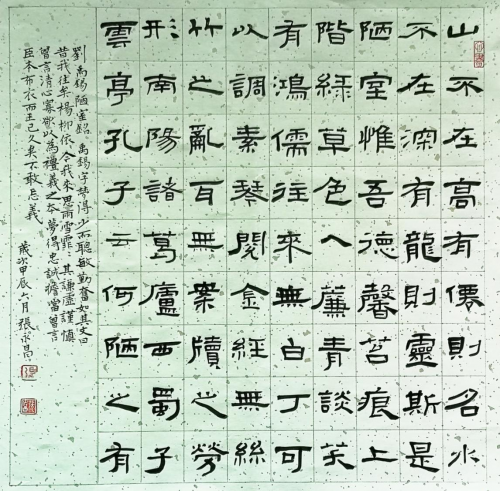 山不在高有僊則名水
不在深有龍則靈斯是
陋室惟吾德馨苔痕上
階綠草色入簾青談笑
有鴻儒往來無白丁可
以調素琴閱金經無絲
竹之亂耳無案牘之勞
形南陽諸葛廬西蜀子
雲亭孔子云何陋之有
劉禹錫陋室銘 禹錫字夢得少而聰敏勤奮如其文曰
昔我往矣楊柳依依今我來思雨雪霏霏其謙虛謹慎
嘗言清心寡欲以為禮義之本夢得忠誠嘗言
臣本布衣而王已久矣不敢忘義
歲次甲辰六月張永昌